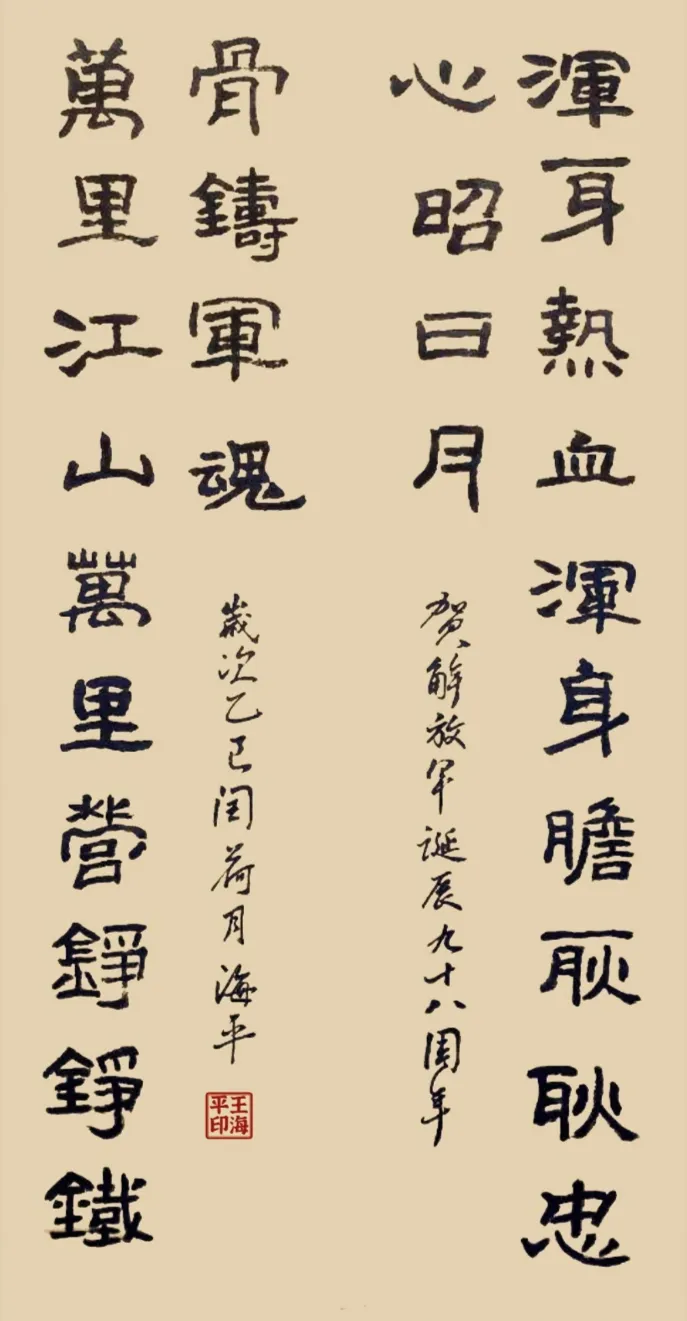 渾身熱血渾身膽耿耿忠
心昭日月
贺解放军诞辰九十八周年
萬里江山萬里營錚錚鐵
骨鑄軍魂
歲次乙巳闰荷月海平
王海平印